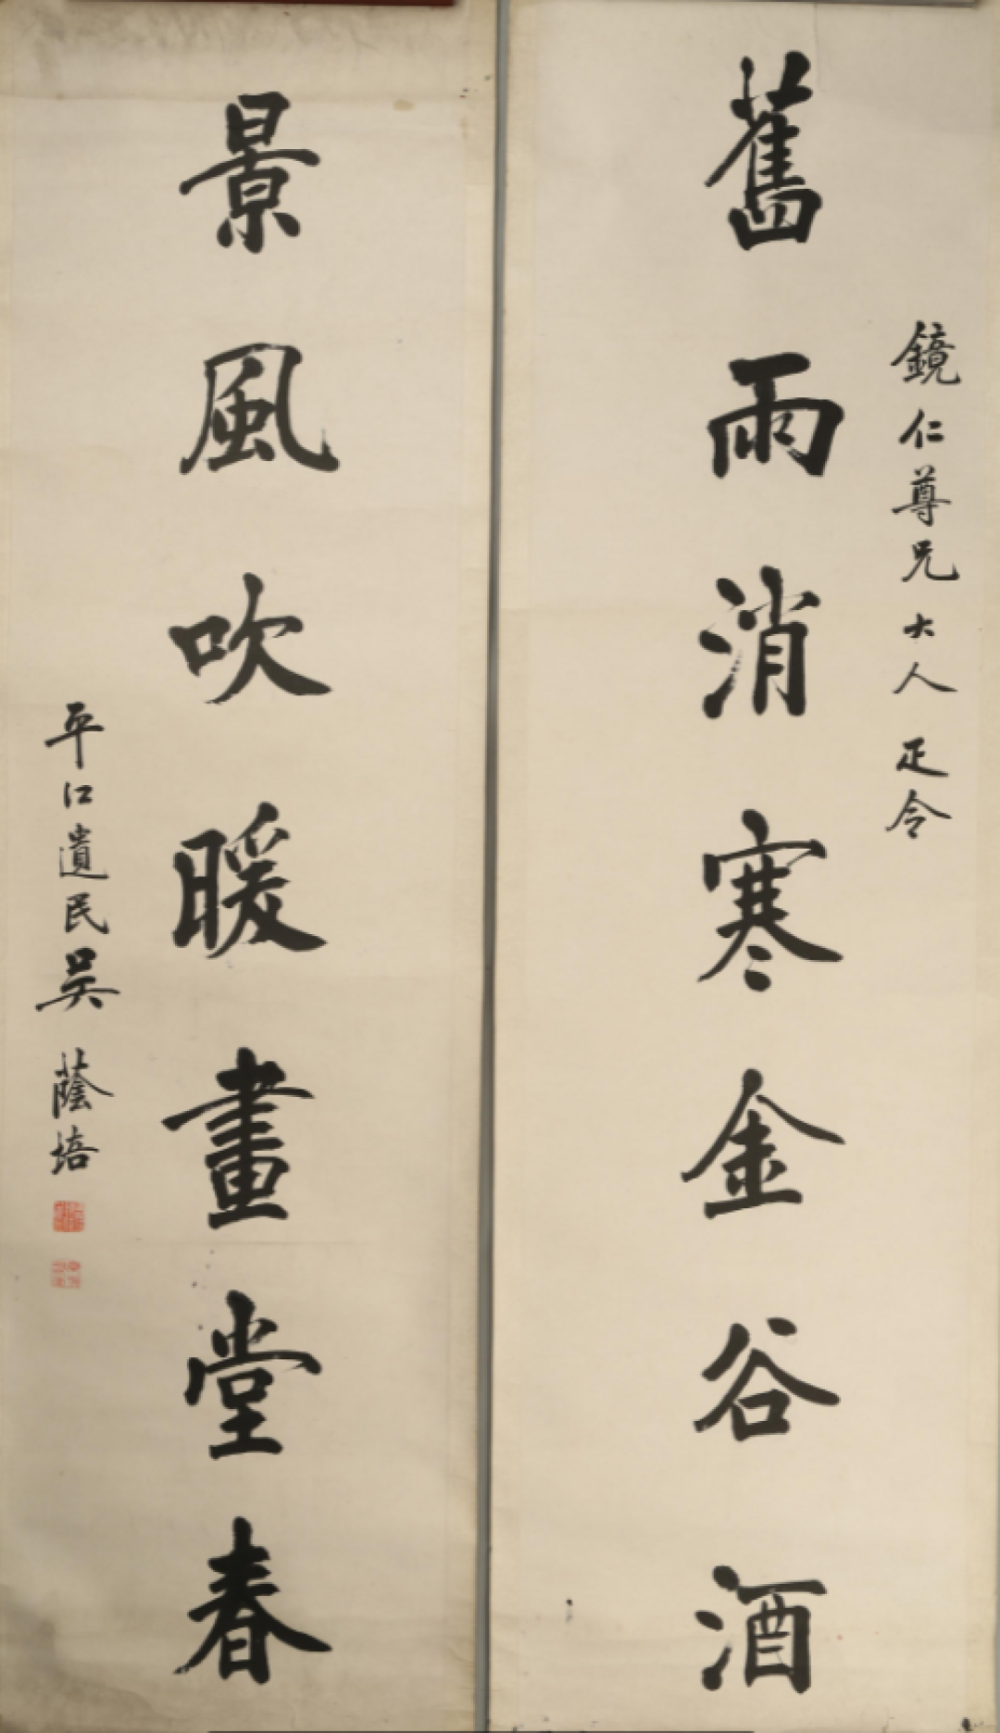 鏡仁尊兄大人正令
舊雨消寒金谷酒
景風吹暖畫堂春
平江遺民吳蔭培